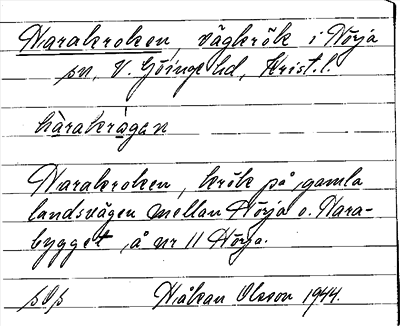 Harakroken, vägkrök i Hörja
sn, V. Göinge hd, Krist. l.
hàrakràgan
Harakroken, krök på gamla
landsvägen mellan Hörja o. Hara-
bygget, å nr 11 Hörja.
Håkan Olsson 1944.